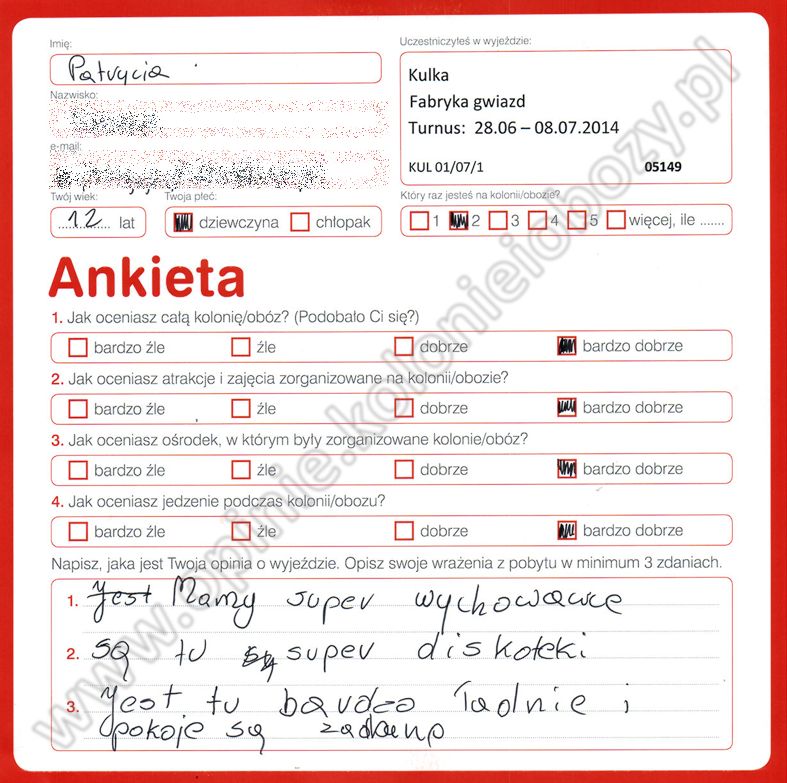 Imię:
Patrycia
Uczestniczyłeś w wyjeździe:
Kulka
Fabryka gwiazd
Turnus: 28.06 – 08.07.2014
KUL 01/07/1 05149
Nazwisko:
e-mail:
Twój wiek:
12 lat
Twoja płeć:
dziewczyna chłopak
Który raz jesteś na kolonii/obozie?
1 2 3 4 5 więcej, ile .......
Ankieta
1. Jak oceniasz całą kolonię/obóz? (Podobało Ci się?)
bardzo źle źle dobrze bardzo dobrze
2. Jak oceniasz atrakcje i zajęcia zorganizowane na kolonii/obozie?
bardzo źle źle dobrze bardzo dobrze
3. Jak oceniasz ośrodek, w którym były zorganizowane kolonie/obóz?
bardzo źle źle dobrze bardzo dobrze
4. Jak oceniasz jedzenie podczas kolonii/obozu?
bardzo źle źle dobrze bardzo dobrze
Napisz, jaka jest Twoja opinia o wyjeździe. Opisz swoje wrażenia z pobytu w minimum 3 zdaniach.
1. Jest Mamy super wychowawce
2. są tu super diskoteki
3. Jest tu bardzo ładnie i
pokoje są
www.opinie.kolonieiobozy.pl